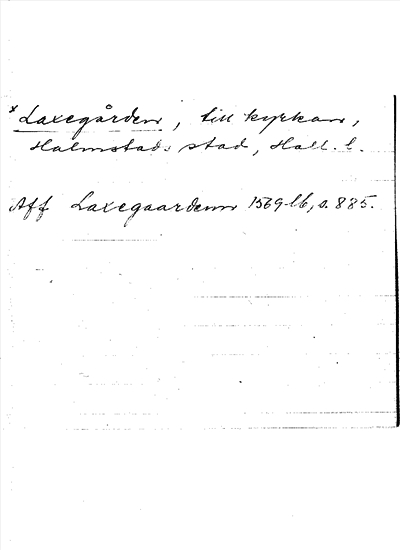 * Laxegården, till kyrkan,
Halmstads stad, Hall. l.
Aff Laxegaardenn 1569 lb, s. 885.